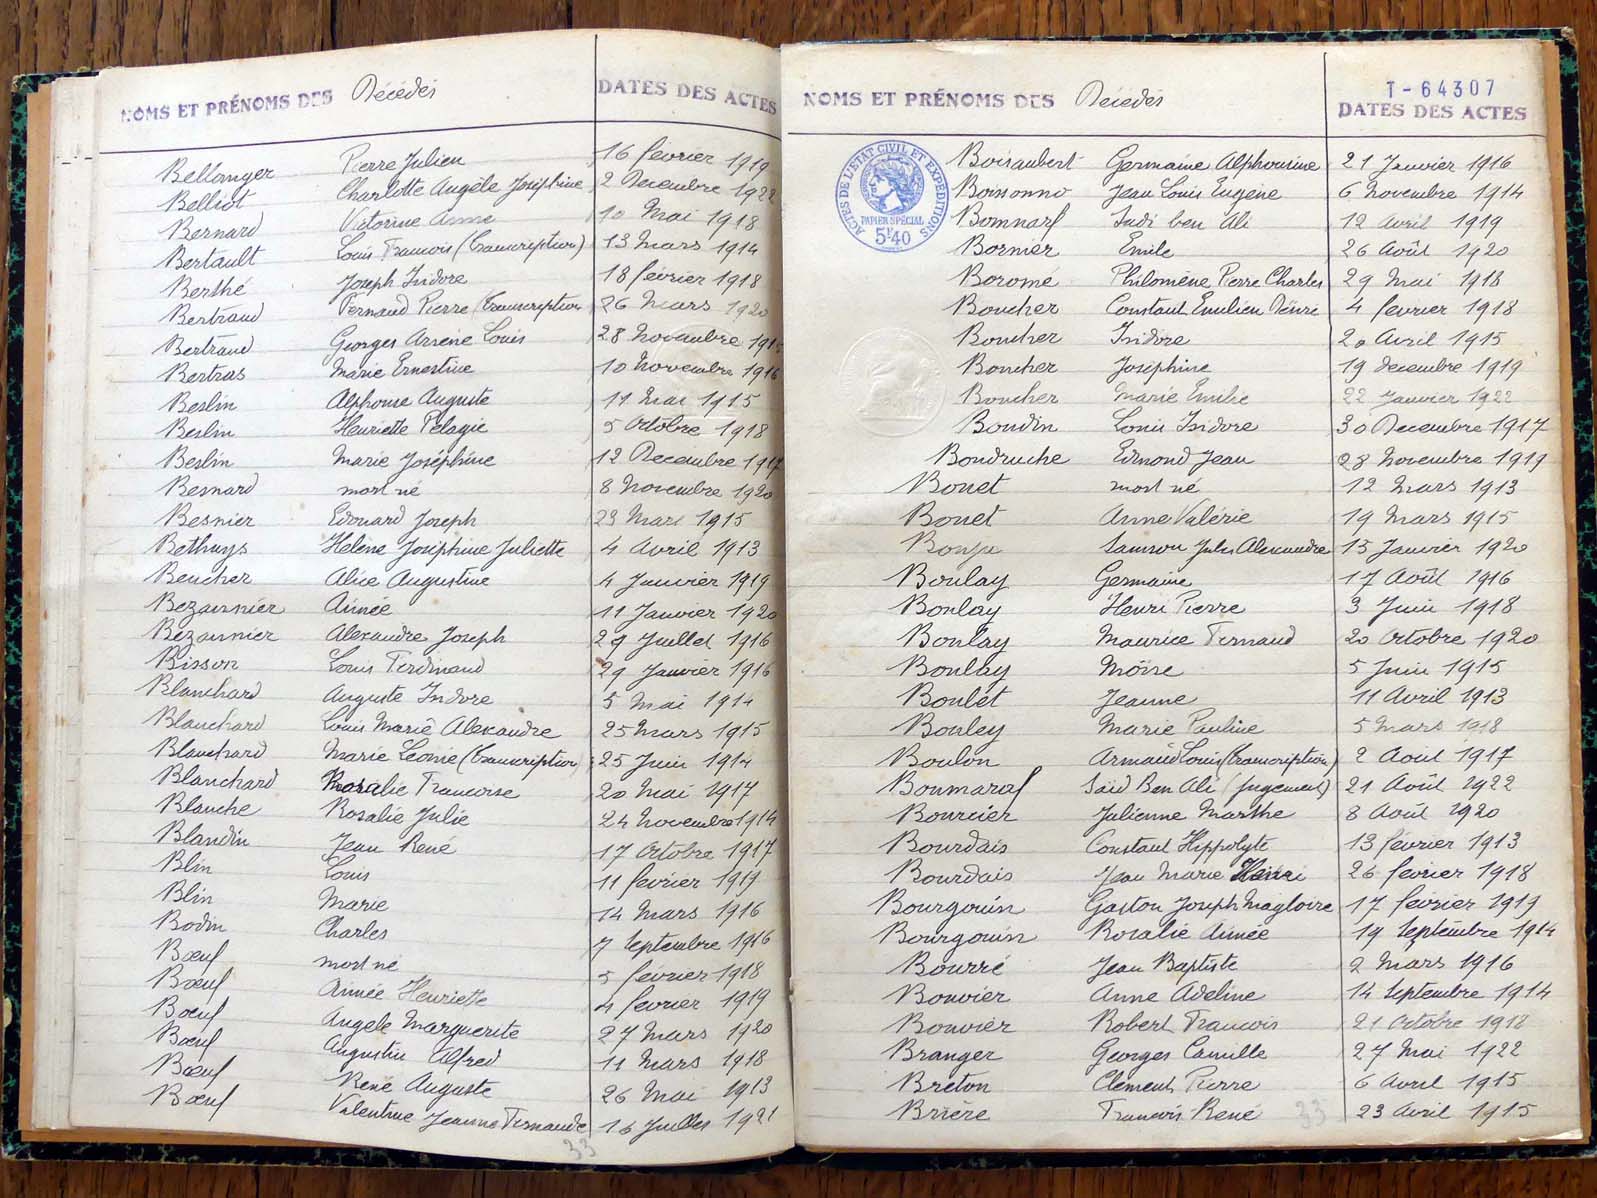 NOMS ET PRÉNOMS DES Décédés DATES DES ACTES
Bellanger Pierre Julien 16 février 1919
Belliot Charlotte Angèle Joséphine 2 Decembre 1922
Bernard Victorine Anne 10 Mai 1918
Bertault Louis Francois (Transcription) 13 Mars 1914
Berthé Joseph Isidore 18 février 1918
Bertrand Fernand Pierre (Transcription 26 Mars 1920
Bertrand Georges Arsène Louis 28 Novembre
Bertras Marie Ernestine 10 Novembre 1916
Beslin Alphonse Auguste 11 Mai 1915
Beslin Henriette Pelagie 5 Octobre 1918
Beslin Marie Joséphine 12 Decembre 1917
Besnard mort né 8 Novembre 1920
Besnier Edouard Joseph 23 Mars 1915
Bethuys Helène Joséphine Juliette 4 Avril 1913
Beucher Alice Augustine 4 Janvier 1919
Bezannier Aimée 11 Janvier 1920
Bezannier Alexandre Joseph 29 Juillet 1916
Bisson Louis Ferdinand 29 Janvier 1916
Blanchard Auguste Isidore 5 Mai 1914
Blanchard Louis Marie Alexandre 25 Mars 1915
Blanchard Marie Leonie (Transcription) 25 Juin 1914
Blanchard Rosalie Francoise 20 Mai 1917
Blanche Rosalie Julie 24 Novembre 1914
Blandin Jean René 17 Octobre 1917
Blin Louis 11 février 1919
Blin Marie 14 Mars 1916
Bodin Charles 7 Septembre 1916
Bœuf mort né 5 février 1918
Bœuf Aimée Henriette 4 février 1919
Bœuf Angele Marguerite 27 Mars 1920
Bœuf Augustin Alfred 11 Mars 1918
Bœuf René Auguste 26 Mai 1913
Bœuf Valentine Jeanne Fernande 16 Juillet 1921
33
T-64307
NOMS ET PRÉNOMS DES Décédés DATES DES ACTES
ACTES DE L'ETAT CIVIL ET EXPEDITIONS
PAPIER SPÉCIAL
5F40
Boisaubert Germaine Alphonsine 21 Janvier 1916
Boissonno Jean Louis Eugène 6 Novembre 1914
Bomnarf ben Ali 12 Avril 1919
Bornier Emile 26 Août 1920
Boromé Philomène Pierre Charles 29 Mai 1918
Boucher Constant Emilien Désiré 4 février 1918
Boucher Isidore 20 Avril 1915
Boucher Joséphine 19 decembre 1919
Boucher Marie Emilie 22 Janvier 1922
Boudin Louis Isidore 30 Decembre 1917
Boudruche Edmond Jean 28 Novembre 1919
Bouet mort né 12 Mars 1913
Bouet Anne Valérie 19 Mars 1915
Samson Jules Alexandre 15 Janvier 1920
Boulay Germaine 17 Août 1916
Boulay Henri Pierre 3 Juin 1918
Boulay Maurice Fernand 20 Octobre 1920
Boulay Moïse 5 Juin 1915
Boulet Jeanne 11 Avril 1913
Bouley Marie Pauline 5 Mars 1918
Boulon Armand Louis (Transcription) 2 Aout 1917
Boumaraf Saïd Ben Ali (jugement) 21 Août 1922
Bourcier Julienne Marthe 8 Août 1920
Bourdais Constant Hippolyte 13 février 1913
Bourdais Jean Marie Henri 26 février 1918
Bourgouin Gaston Joseph Magloire 17 février 1919
Bourgouin Rosalie Aimée 19 Septembre 1914
Bourré Jean Baptiste 2 Mars 1916
Bouvier Anne Adeline 14 Septembre 1914
Bouvier Robert Francois 21 Octobre 1918
Branger Georges Camille 27 Mai 1922
Breton Clement Pierre 6 Avril 1915
Brière Francois René 23 Avril 1915
33